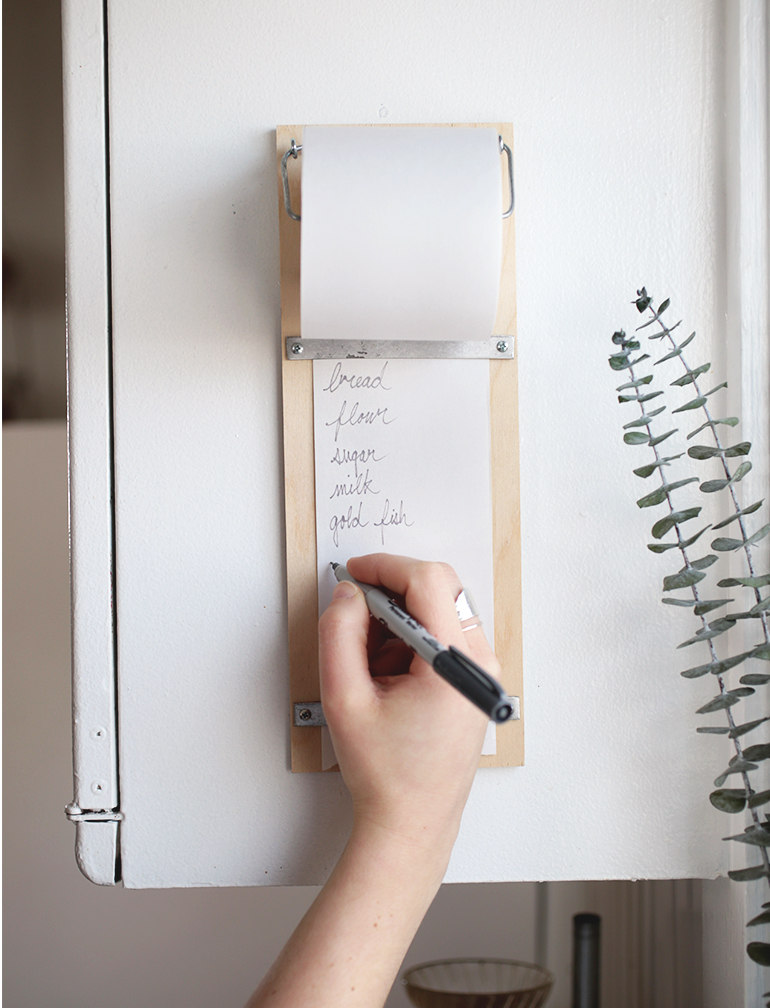 bread
flour
sugar
milk
gold fish